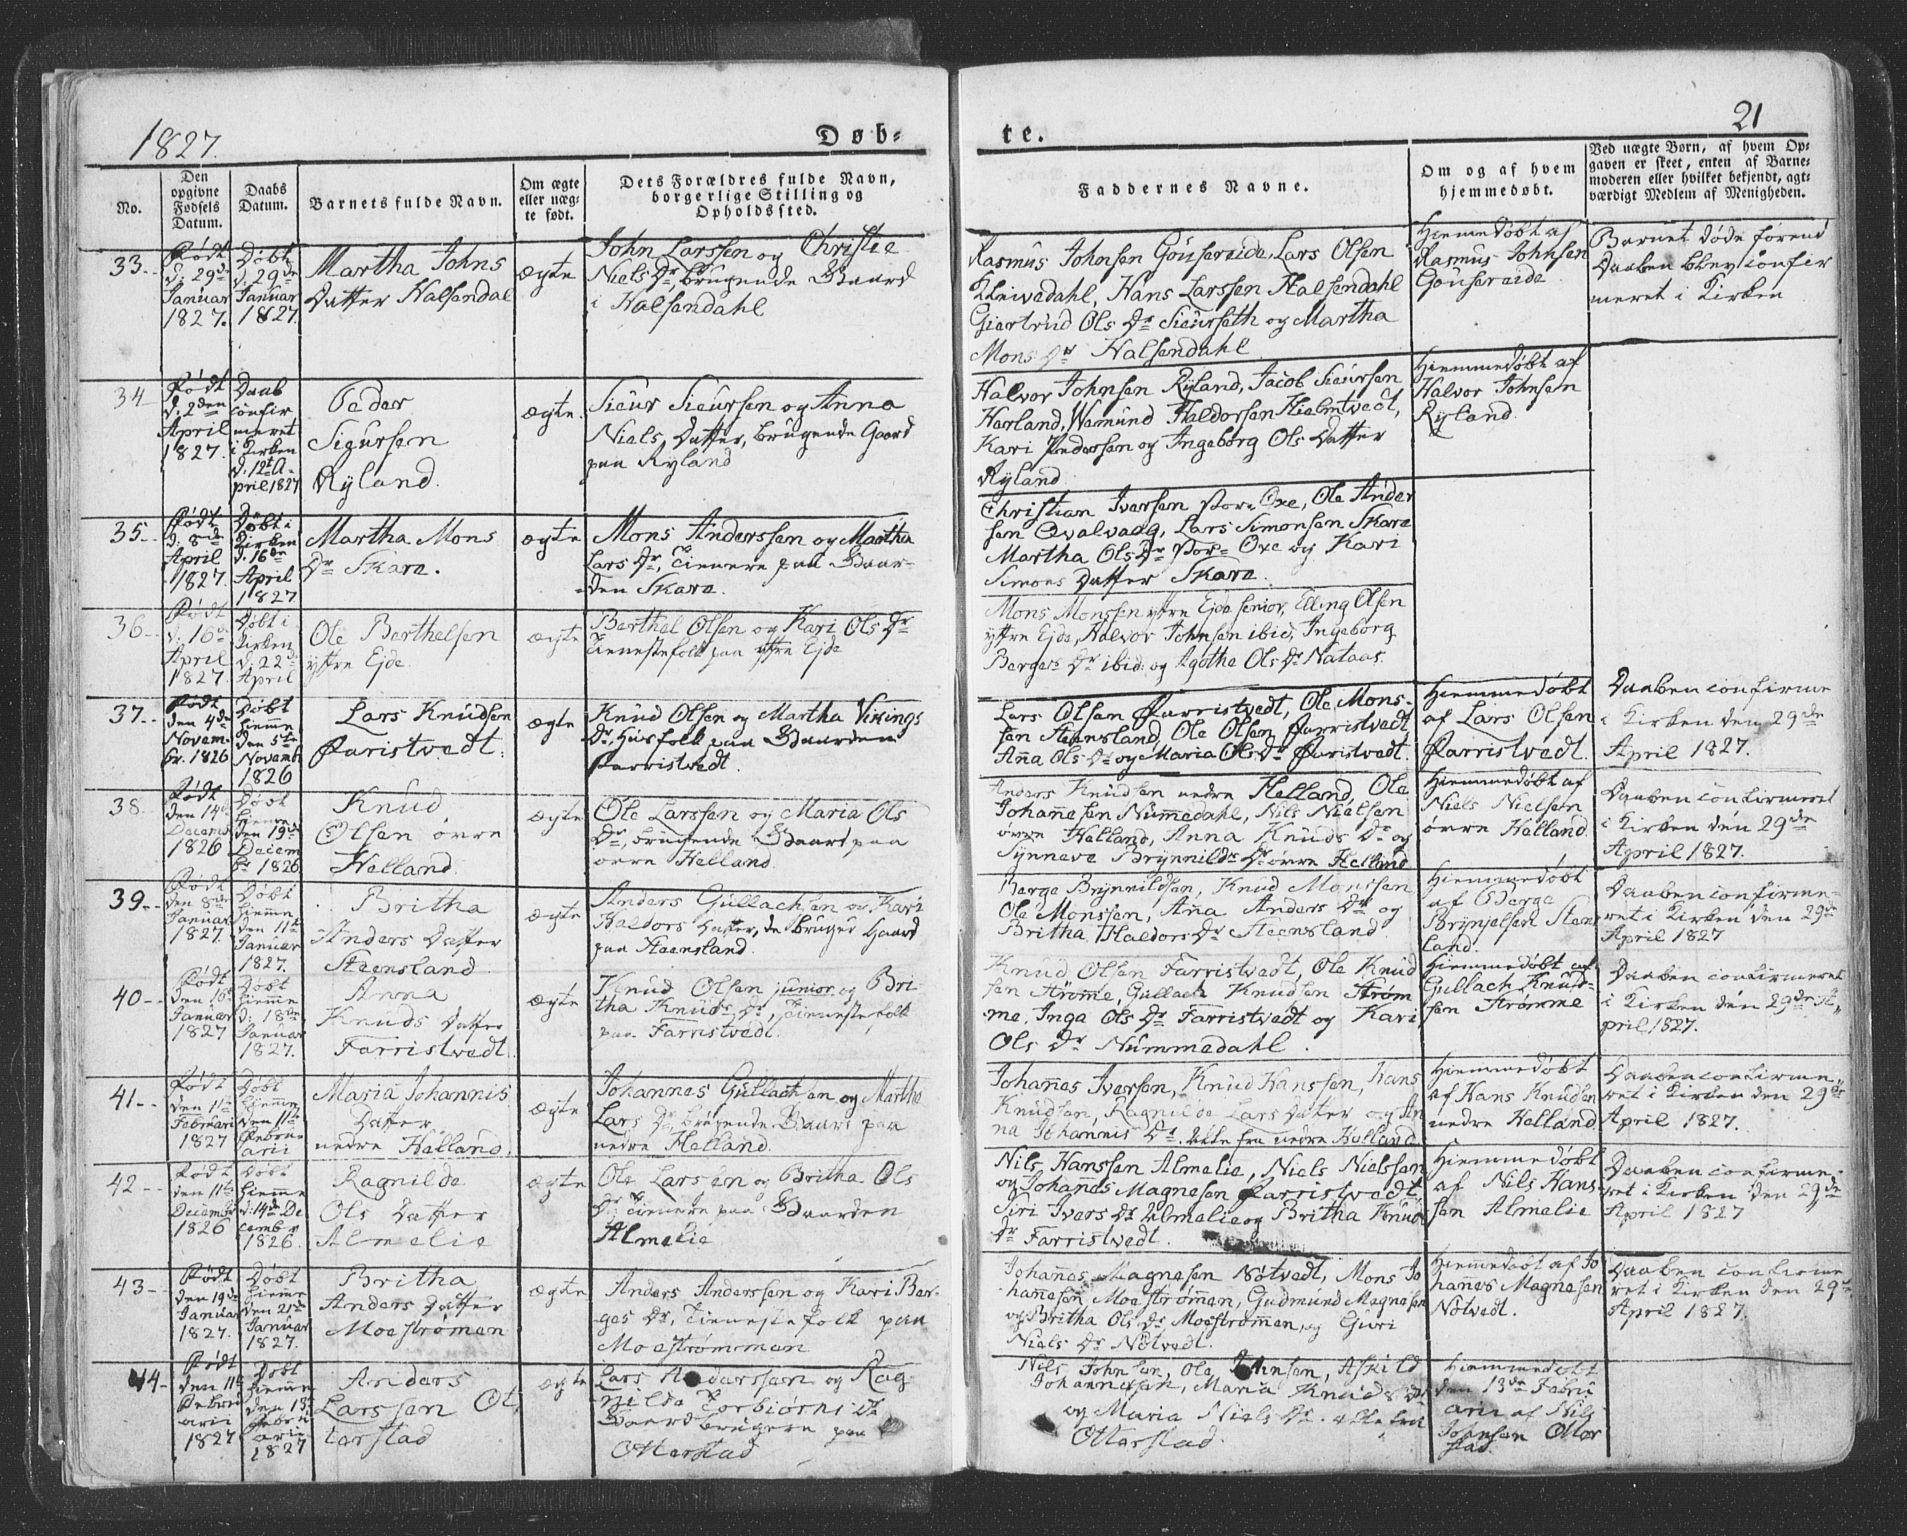 1827.
Døb-
te.
21
No.
Den opgivne Fødsels Datum.
Daabs Datum.
Barnets fulde Navn.
Om ægte eller uæg- te født.
Dets Forældres fulde Navn, borgerlige Stilling og Opholdssted.
Faddernes Navne.
Om og af hvem hjemmedøbt.
Ved uægte Børn, af hvem Op- gaven er skeet, enten af Barne- moderen eller hvilket bekjendt, agt- værdigt Medlem af Menigheden.
33.
Født
d: 29de
Januar
1827.
Døbt
d: 29de
Januar
1827.
Martha Johns
Datter Halsendal
ægte
John Larssen og Christie
Niels Dr, brugende Gaard
i Halsendahl
Rasmus Johnsen Gousereide, Lars Olsen
Kleivedahl, Hans Larssen Halsendahl
Giertrud Ols Dr Sieurseth og Martha
Mons Dr Halsendahl
Hiemedøbt af
Rasmus Johnsen
Gousereide
Barnet døde førend
Daaben blev confir
meret i Kirken
34
Født
d: 2den
April
1827.
Daab
confir
meret
i Kirken
d. 12t A-
pril 1827
Peder
Sigursen
Ryland.
ægte
Sieur Sieursen og Anna
Niels Datter, brugende Gaard
paa Ryland
Halvor Johnsen Ryland, Jacob Sieursen
Harland, Wamund Haldorsen Hielmtvedt,
Kari Pedersen og Ingeborg Ols Datter
Ryland
Hiemmedøbt af
Halvor Johnsen
Ryland
35.
Født
d: 8de
April
1827.
Døbt i
Kirken
d. 16de
April
1827
Martha Mons
Dr Skare.
ægte
Mons Anderssen og Martha
Lars Dr, Tienere paa Gaar-
den Skare.
Christian Iversen Oxe, Ole Ander
sen Qvalvaag, Lars Simonsen Skare
Martha Ols Dr Oxe og Kari
Simons Datter Skare.
36.
Født
d: 16de
April
1827.
Døbt i
Kirken
d. 22de
April
Ole Berthelsen
yttre Ejde
ægte
Berthel Olsen og Kari Ols Dr
Tienestefolk paa yttre Ejde
Mons Monssen yttre Ejde senior, Elling Olsen
yttre Ejde, Halvor Johnsen ibid, Ingeborg
Berges Dr ibid: og Agothe Ols Dr Nataas.
37.
Født
den 4de
Novem-
br. 1826
Døbt
hiemme
den 5te
Novemb
1826
Lars Knudsen
Faristvedt.
ægte
Knud Olsen og Martha Vikings
Dr, Husfolk paa Gaarden
Farristvedt.
Lars Olsen Farristvedt, Ole Mons-
sen Steensland, Ole Olsen Farristvedt
Anna Ols Dr og Maria Ols Dr Faristvedt.
Hiemmedøbt
af Lars Olsen
Farristvedt.
Daaben confirme
i Kirken den 29de
April 1827.
38.
Født
den 14de
Decemb
1826
Døbt
hieme
den 19de
Decem
br 1826
Knud
Olsen øvre
Helland.
ægte
Ole Larssen og Maria Ols
Dr, brugende Gaard paa
øvre Helland.
Anders Knudsen nedre Helland, Ole
Johannesen Nummedahl, Nils Nielsen
øvre Helland, Anna Knuds Dr og
Synneve Brynnilds Dr øvre Helland
Hiemmedøbt af
Niels Nielsen
øvre Helland.
Daaben confirmeret
i Kirken den 29de
April 1827.
39.
Født
den 8de
Januar
1827.
Døbt
hiemme
den 11te
Januar
1827.
Britha
Anders Datter
Steensland.
ægte
Anders Gullachsen og Kari
Haldors Datter, de bruger Gaard
paa Steensland.
Berge Brynnildsen, Knud Monssen
Ole Monssen, Ana Anders Dr og
Britha Haldors Dr Steensland
Hiemmedøbt
af Berge
Brynjelsen Steen
land.
Daaben confirme-
ret i Kirken den 29de
April 1827
40.
Født
den 16de
Januar
1827
Døbt
hiemme
d: 18de
Januar
1827.
Anna
Knuds Datter
Farristvedt.
ægte
Knud Olsen junior og Bri
tha Knuds Dr, Tienestefolk
paa Farristvedt.
Knud Olsen Farristvedt, Ole Knud
sen Strøme, Gullach Knudsen Strøm
me, Inga Ols Dr Farristvedt og Kari
Ols Dr Nummedahl.
Hiemmedøbt af
Gullach Knud-
sen Strømme
Daaben confirmeret
i Kirken den 29de A
pril 1827.
41.
Født
den 11te
Februari
1827
Døbt
hiemme
den 11te
Februa
arii
Maria Johannis
Datter
nedre Helland.
ægte
Johannes Gullachsen og Martha
Lars Dr, brugende Gaard paa
nedre Helland.
Johanes Iversen, Knud Hanssen, Hans
Knudsen, Ragnilde Lars Datter og An
na Johannis Dr. alle fra nedre Helland
Hiemmedøbt
af Hans Knudsen
nedre Helland
Daaben confirme-
ret i Kirken den 29de
April 1827.
42.
Født
den 11te
Decembr
1826
Døbt
hiemme
d: 14de De
cembr
1826.
Ragnilde
Ols Datter
Almelie
ægte
Ole Larsen og Britha Ols
Dr, Tienere paa Gaarden
Almelie
Nils Hanssen Almelie, Niels Nielssen
og Johanes Magnesen Farristvedt,
Siri Ivers Dr Almelie og Britha Knuds
Dr Farristvedt.
Hiemmedøbt
af Nils Hans-
sen Almelie
Daaben confirme-
ret i Kirken den 29de
April 1827
43.
Født
den 19de
Januar
1827.
Døbt
hiemme
den 21de
Januar
1827.
Britha
Anders Datter
Moestrømen
ægte
Anders Anderssen og Kari Ber-
ges Dr, Tienestefolk paa
Moestrømmen
Johanes Magnesen Nøtvedt, Mons Jo
hannesen Moestrømmen, Gudmund Magnesen
og Britha Ols Dr Moestrømmen, og Guri
Niels Dr Nøtvedt.
Hiemedøbt af Jo
hannes Magnesen
Nøtvedt.
Daaben confirme
ret i Kirken den 29de
April 1827.
44.
Født
den 11te
Febru
arii
1827
Døbt
hiemme
den 13de
Febru
arii
1827
Anders
Larssen Ot
terstad
ægte
Lars Anderssen og Rag
nilde Torbiørns Dr
Gaard brugere paa
Otterstad
Nils Johnsen, Ole Johnsen, Askild
Johannesen, Maria Knuds Dr
og Maria Niels Dr. alle fra
Otterstad.
Hiemmedøbt
den 13de Febru
arii af Nils
Johnsen Otter
stad.